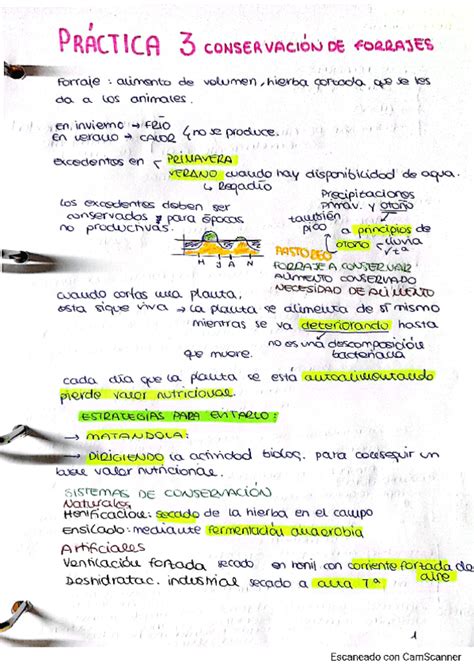 PRÁCTICA 3 CONSERVACIÓN DE FORRAJES
Forraje: alimento de volumen, hierba cortada que se les
da a los animales.
en invierno → FRÍO
en verano → CALOR no se produce.
excedentes en PRIMAVERA
VERANO cuando hay disponibilidad de agua.
↳ Regadío
Precipitaciones
Primav. y otoño
los excedentes deben ser
conservados para épocas
no productivas.
también
pico a principios de
otoño lluvia
Tª
H J A N
PASTOREO
FORRAJE A CONSERVAR
ALIMENTO CONSERVADO
NECESIDAD DE ALIMENTO
cuando cortas una planta,
esta sigue viva → la planta se alimenta de sí mismo
mientras se va deteriorando hasta
que muere.
no es una descomposición
bacteriana
cada día que la planta se está autoalimentando
pierde valor nutricional.
ESTRATEGIAS PARA EVITARLO:
→ MATANDOLA:
→ DIRIGIENDO la actividad biolog. para conseguir un
buen valor nutricional.
SISTEMAS DE CONSERVACIÓN
Naturales
Henificación: secado de la hierba en el campo
Ensilado: mediante fermentación anaerobia
Artificiales
Ventilación forzada secado en henil con corriente forzada de
aire
Deshidratac. industrial secado a alta Tª
1
Escaneado con CamScanner